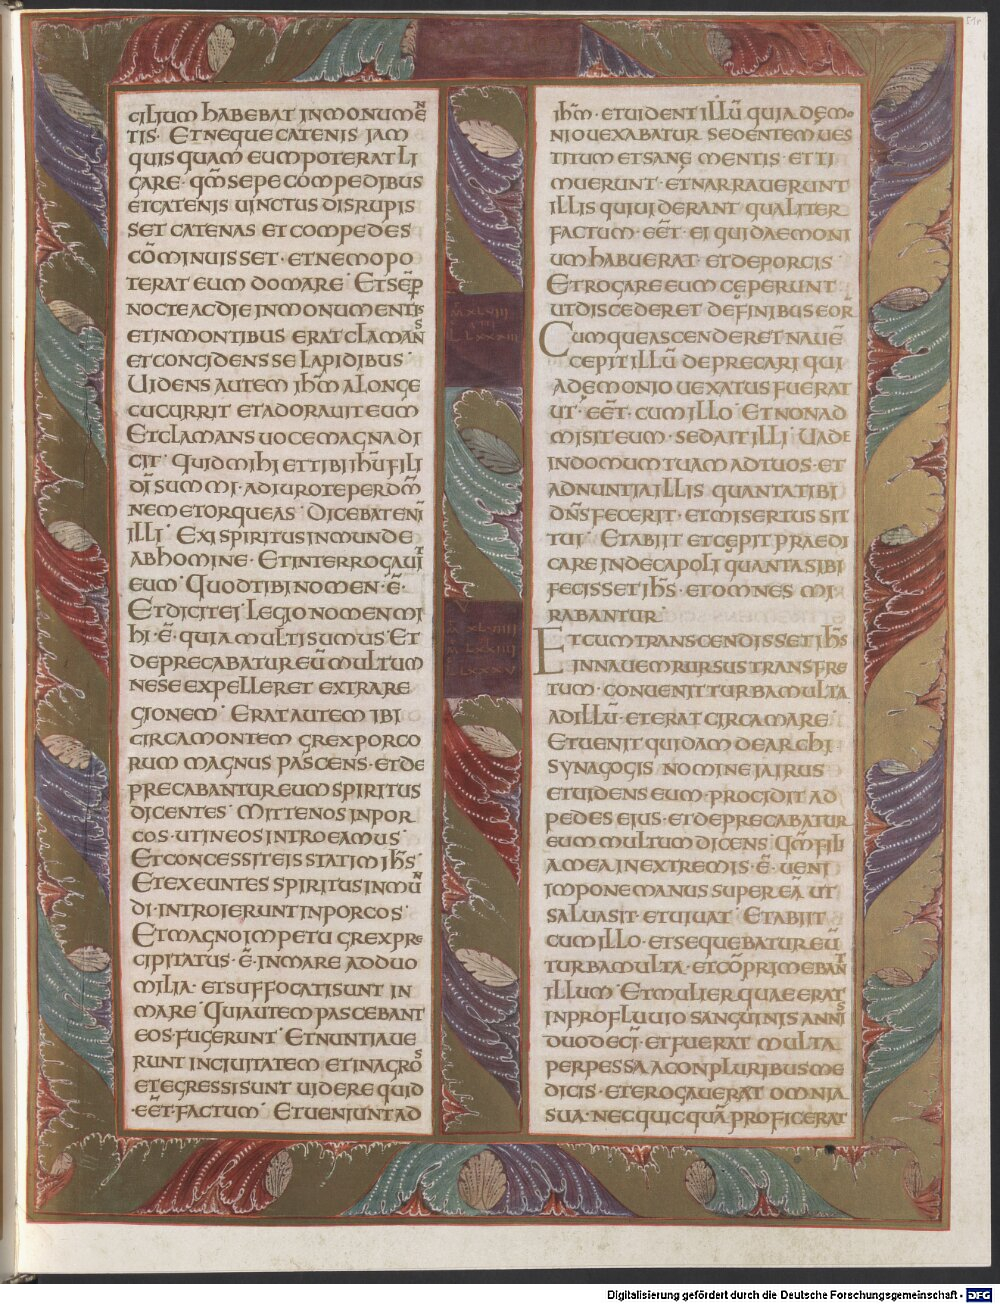 51r
CILIUM HABEBAT IN MONUMĒN
TIS · ET NEQUE CATENIS IAM
QUISQUAM EUM POTERAT LI
GARE · QM̄ SEPE COMPEDIBUS
ET CATENIS UINCTUS DISRUPIS
SET CATENAS ET COMPEDES
CŌMINUISSET · ET NEMO PO
TERAT EUM DOMARE · ET SEMP̄
NOCTE AC DIE IN MONUMENTIS
ET IN MONTIBUS ERAT CLAMANS
ET CONCIDENS SE LAPIDIBUS ·
UIDENS AUTEM IHM̄ A LONGE
CUCURRIT ET ADORAUIT EUM
ET CLAMANS UOCE MAGNA DI
CIT · QUID MIHI ET TIBI IHŪ FILI
DĪ SUMMI · ADIURO TE PER DM̄
NE ME TORQUEAS · DICEBAT ENĪ
ILLI · EXI SPIRITUS INMUNDE
AB HOMINE · ET INTERROGAUIT
EUM · QUOD TIBI NOMEN · Ē ·
ET DICIT EI · LEGIO NOMEN MI
HI · Ē · QUIA MULTI SUMUS · ET
DEPRECABATUR EŪ MULTUM
NE SE EXPELLERET EXTRA RE
GIONEM · ERAT AUTEM IBI
CIRCA MONTEM GREX PORCO
RUM MAGNUS PASCENS · ET DE
PRECABANTUR EUM SPIRITUS
DICENTES · MITTE NOS IN POR
COS · UT IN EOS INTROEAMUS ·
ET CONCESSIT EIS STATIM IHS̄ ·
ET EXEUNTES SPIRITUS INMUN
DI · INTROIERUNT IN PORCOS ·
ET MAGNO IMPETU GREX PRE
CIPITATUS · Ē · IN MARE AD DUO
MILIA · ET SUFFOCATI SUNT IN
MARE · QUI AUTEM PASCEBANT
EOS · FUGERUNT · ET NUNTIAUE
RUNT IN CIUITATEM ET IN AGROS
ET EGRESSI SUNT UIDERE QUID
· EET̄ · FACTUM · ET UENIUNT AD
M XLVIII
L LXXXIII
XLVIIII
LXXIIII
LXXXV
IHM̄ · ET UIDENT ILLŪ QUI A DĘMO
NIO UEXABATUR SEDENTEM UES
TITUM ET SANĘ MENTIS · ET TI
MUERUNT · ET NARRAUERUNT
ILLIS QUI UIDERANT QUALITER
FACTUM · EET̄ · EI QUI DAEMONI
UM HABUERAT · ET DE PORCIS ·
ET ROGARE EUM CĘPERUNT
UT DISCEDERET DE FINIBUS EOR̄
CUMQUE ASCENDERET NAUĒ
CEPIT ILLŪ DEPRECARI QUI
A DEMONIO UEXATUS FUERAT
UT · EET̄ · CUM ILLO · ET NON AD
MISIT EUM · SED AIT ILLI · UADE
IN DOMUM TUAM AD TUOS · ET
ADNUNTIA ILLIS QUANTA TIBI
DN̄S FECERIT · ET MISERTUS SIT
TUI · ET ABIIT ET CĘPIT PRAEDI
CARE IN DECAPOLI QUANTA SIBI
FECISSET IHS̄ · ET OMNES MI
RABANTUR ·
ET CUM TRANSCENDISSET IHS̄
IN NAUEM RURSUS TRANS FRE
TUM · CONUENIT TURBA MULTA
AD ILLŪ · ET ERAT CIRCA MARE ·
ET UENIT QUIDAM DE ARCHI
SYNAGOGIS NOMINE IAIRUS
ET UIDENS EUM · PROCIDIT AD
PEDES EIUS · ET DEPRECABATUR
EUM MULTUM DICENS · QM̄ FILI
A MEA IN EXTREMIS · Ē · UENI
IMPONE MANUS SUPER EĀ UT
SALUA SIT · ET UIUAT · ET ABIIT
CUM ILLO · ET SEQUEBATUR EŪ
TURBA MULTA · ET CŌPRIMEBANT
ILLUM · ET MULIER QUAE ERAT
IN PROFLUUIO SANGUINIS ANNIS
DUODECĪ · ET FUERAT MULTA
PERPESSA A CONPLURIBUS ME
DICIS · ET EROGAUERAT OMNIA
SUA · NEC QUICQUĀ PROFICERAT
Digitalisierung gefördert durch die Deutsche Forschungsgemeinschaft - DFG